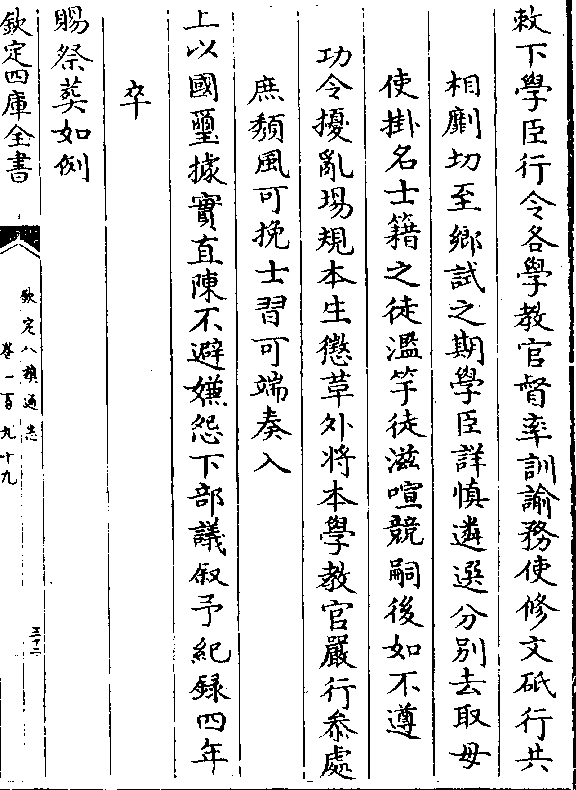 敕下學臣行令各學教官督率訓諭務使修文砥行共
相劘切至鄉試之期學臣詳慎遴選分别去取毋
使掛名士籍之徒濫竽徒滋喧競嗣後如不遵
功令擾亂場規本生懲革外將本學教官嚴行叅處
庶頽風可挽士習可端奏入
上以國璽據實直陳不避嫌怨下部議叙予紀録四年
卒
賜祭葬如例
欽定四庫全書
欽定八旗通志
卷一百九十九
三十二